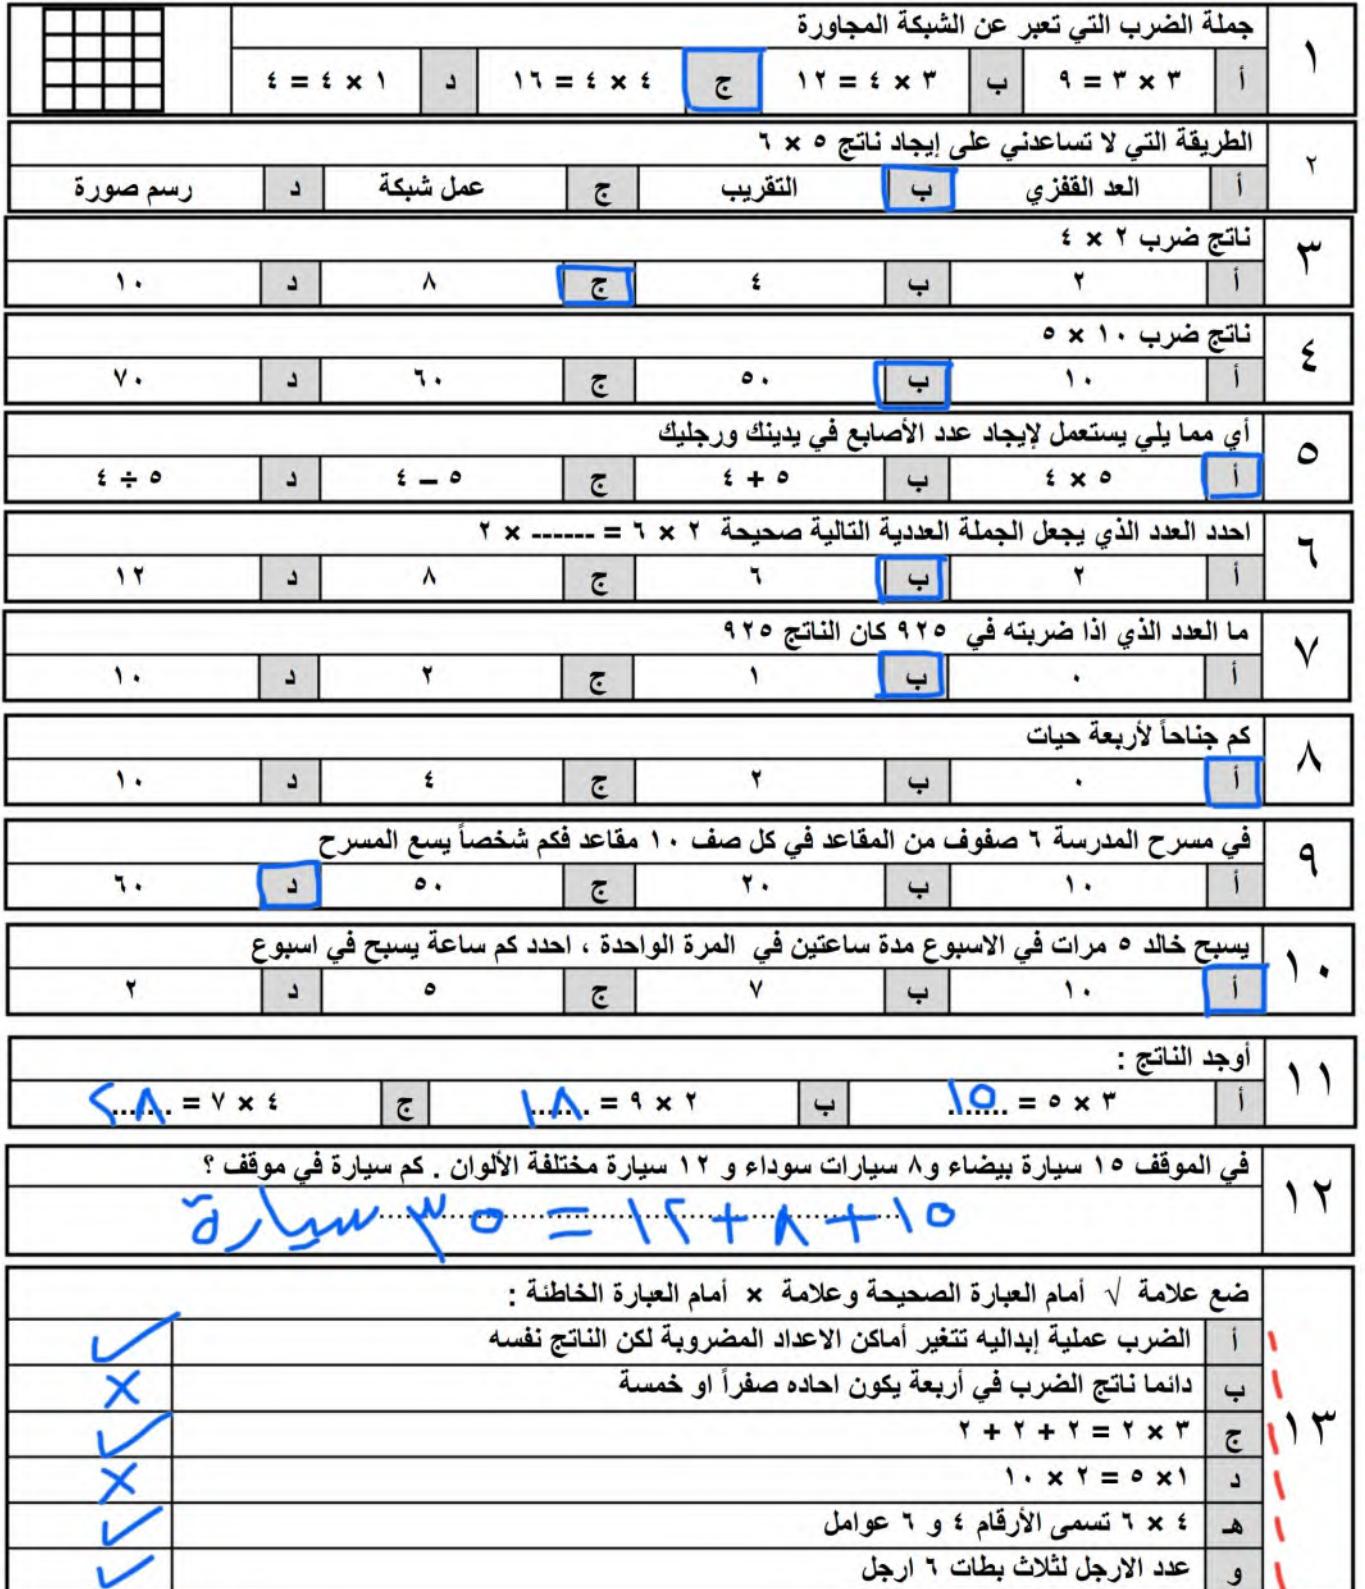 ١ جملة الضرب التي تعبر عن الشبكة المجاورة
أ ٣ × ٣ = ٩ ب ٣ × ٤ = ١٢ ج ٤ × ٤ = ١٦ د ١ × ٤ = ٤
٢ الطريقة التي لا تساعدني على إيجاد ناتج ٥ × ٦
أ العد القفزي ب التقريب ج عمل شبكة د رسم صورة
٣ ناتج ضرب ٢ × ٤
أ ٢ ب ٤ ج ٨ د ١٠
٤ ناتج ضرب ١٠ × ٥
أ ١٠ ب ٥٠ ج ٦٠ د ٧٠
٥ أي مما يلي يستعمل لإيجاد عدد الأصابع في يدينك ورجليك
أ ٥ × ٤ ب ٥ + ٤ ج ٥ – ٤ د ٥ ÷ ٤
٦ احدد العدد الذي يجعل الجملة العددية التالية صحيحة ٢ × ٦ = ------ × ٢
أ ٢ ب ٦ ج ٨ د ١٢
٧ ما العدد الذي اذا ضربته في ٩٢٥ كان الناتج ٩٢٥
أ ٠ ب ١ ج ٢ د ١٠
٨ كم جناحاً لأربعة حيات
أ ٠ ب ٢ ج ٤ د ١٠
٩ في مسرح المدرسة ٦ صفوف من المقاعد في كل صف ١٠ مقاعد فكم شخصاً يسع المسرح
أ ١٠ ب ٢٠ ج ٥٠ د ٦٠
١٠ يسبح خالد ٥ مرات في الاسبوع مدة ساعتين في المرة الواحدة ، احدد كم ساعة يسبح في اسبوع
أ ١٠ ب ٧ ج ٥ د ٢
١١ أوجد الناتج :
أ ٣ × ٥ = ١٥ ب ٢ × ٩ = ١٨ ج ٤ × ٧ = ٢٨
١٢ في الموقف ١٥ سيارة بيضاء و٨ سيارات سوداء و ١٢ سيارة مختلفة الألوان . كم سيارة في موقف ؟
١٥ + ٨ + ١٢ = ٣٥ سيارة
١٣ ضع علامة √ أمام العبارة الصحيحة وعلامة × أمام العبارة الخاطئة :
أ الضرب عملية إبداليه تتغير أماكن الاعداد المضروبة لكن الناتج نفسه ✓
ب دائما ناتج الضرب في أربعة يكون احاده صفراً او خمسة ×
ج ٣ × ٢ = ٢ + ٢ + ٢ ✓
د ١× ٥ = ٢ × ١٠ ×
هـ ٤ × ٦ تسمى الأرقام ٤ و ٦ عوامل ✓
و عدد الارجل لثلاث بطات ٦ ارجل ✓